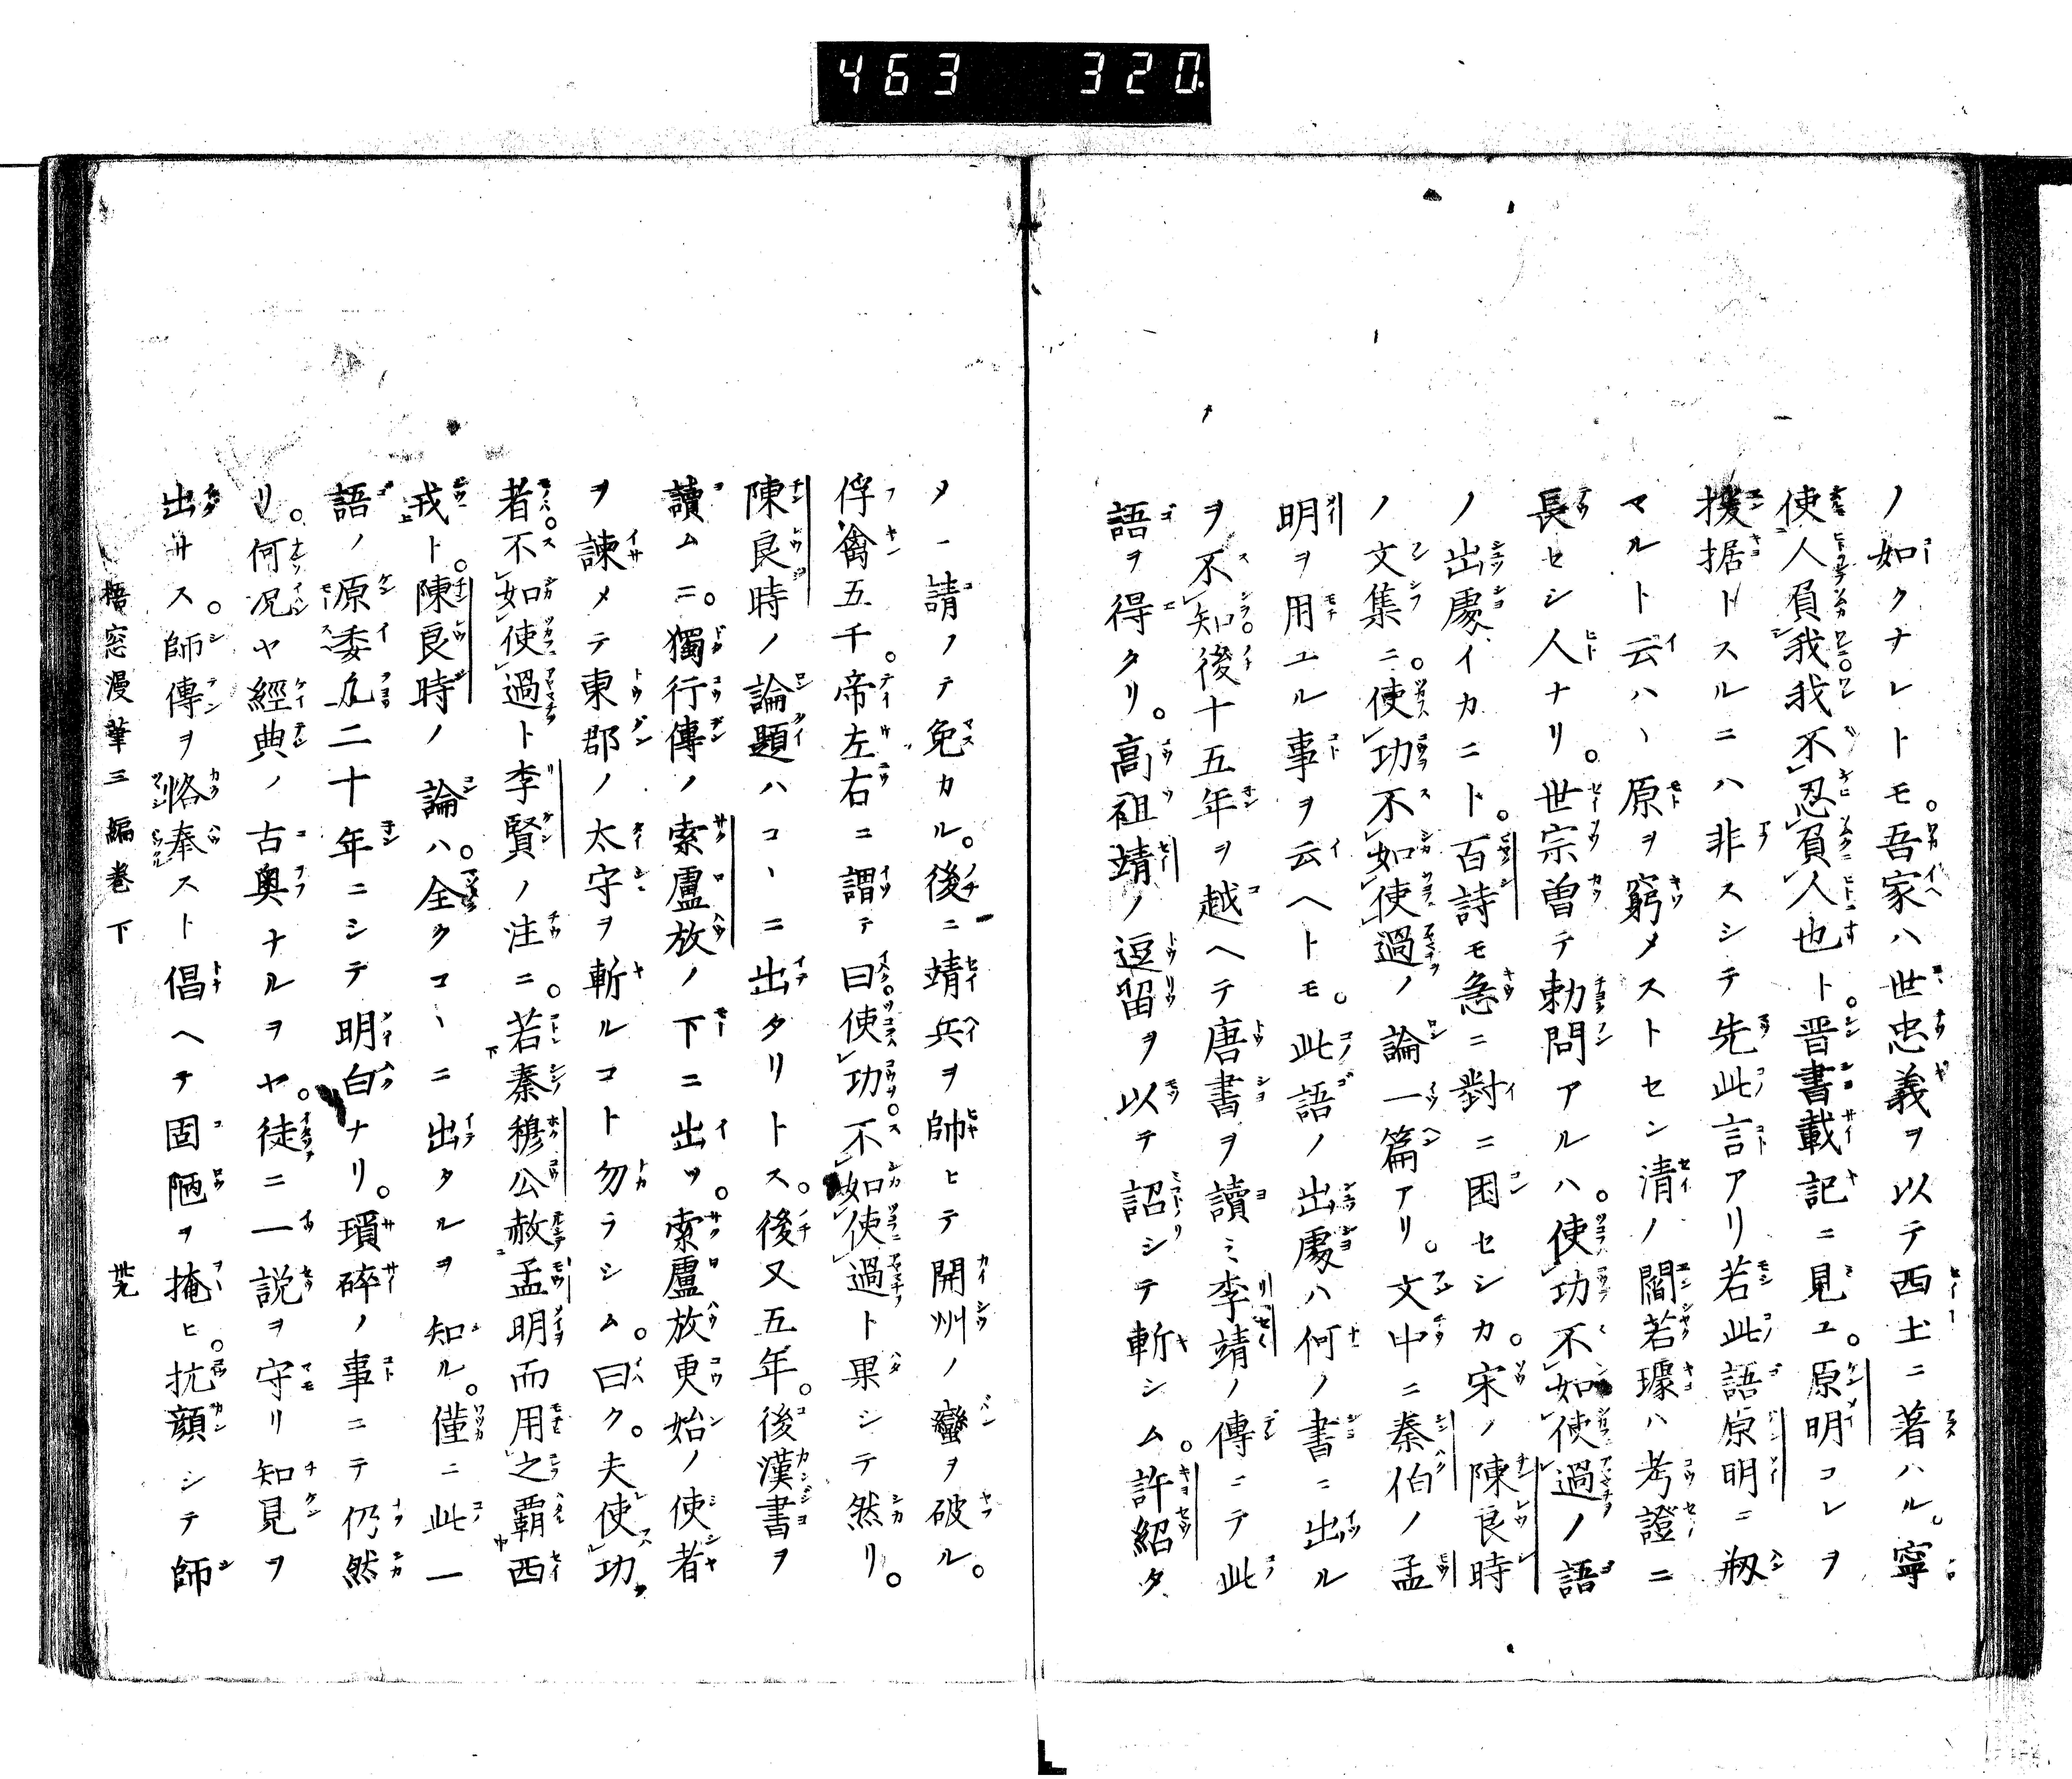 463 320
ノ如クナレトモ。吾家ハ世忠義ヲ以テ西土ニ著ハル。寧
使人負我我不忍負人也ト。晋書載記ニ見ユ。原明コレヲ
援据トスルニハ非スシテ先此言アリ若此語原明ニ剏
マルト云ハヽ原ヲ窮メストセン清ノ閻若璩ハ考證ニ
長セシ人ナリ。世宗曽テ勅問アルハ。使功不如使過ノ語
ノ出處イカニト。百詩モ急ニ對ニ困セシカ。宋ノ陳良時
ノ文集ニ。使功不如使過ノ論一篇アリ。文中ニ秦伯ノ孟
明ヲ用ユル事ヲ云ヘトモ。此語ノ出處ハ何ノ書ニ出ル
ヲ不知後十五年ヲ越ヘテ唐書ヲ讀ミ李靖ノ傳ニテ此
語ヲ得タリ。高祖靖ノ逗留ヲ以テ詔シテ斬シム。許紹タ
メニ請ノテ免カル。後ニ靖兵ヲ帥ヒテ開州ノ蠻ヲ破ル。
俘禽五千。帝左右ニ謂テ曰使功。不如使過ト果シテ然リ。
陳良時ノ論題ハコヽニ出タリトス。後又五年。後漢書ヲ
讀ムニ。獨行傳ノ索盧放ノ下ニ出ツ。索盧放更始ノ使者
ヲ諫メテ東郡ノ太守ヲ斬ルコト勿ラシム。曰ク。夫使功
者。不如使過ト李賢ノ注ニ。若秦穆公赦孟明而用之霸西
戎ト。陳良時ノ論ハ。全クコヽニ出タルヲ知ル。僅ニ此一
語ノ原委凡二十年ニシテ明白ナリ。瑣碎ノ事ニテ仍然
リ。何况ヤ經典ノ古奥ナルヲヤ。徒ニ一説ヲ守リ知見ヲ
出サス。師傳ヲ恪奉スト倡ヘテ固陋ヲ掩ヒ。抗顔シテ師
梧窓漫筆三編巻下 卅九